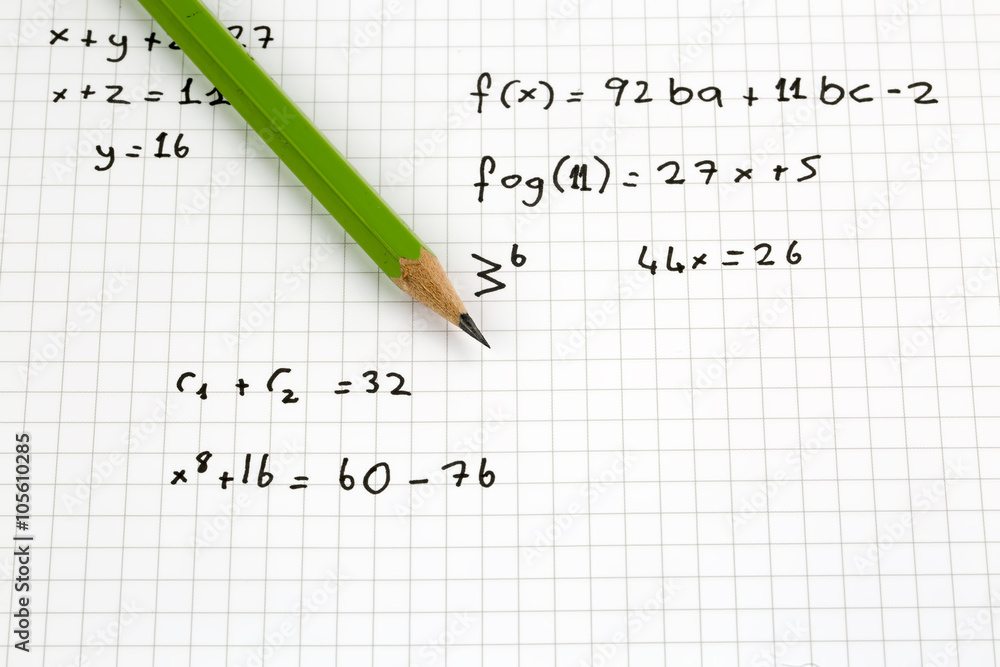 x + y + 27
x + z = 11
y = 16
f(x) = 92 ba + 11 bc - 2
fog(11) = 27 x + 5
Σ⁶
44x = 26
r₁ + r₂ = 32
x⁸ + 16 = 60 - 76
Adobe Stock | #105610285